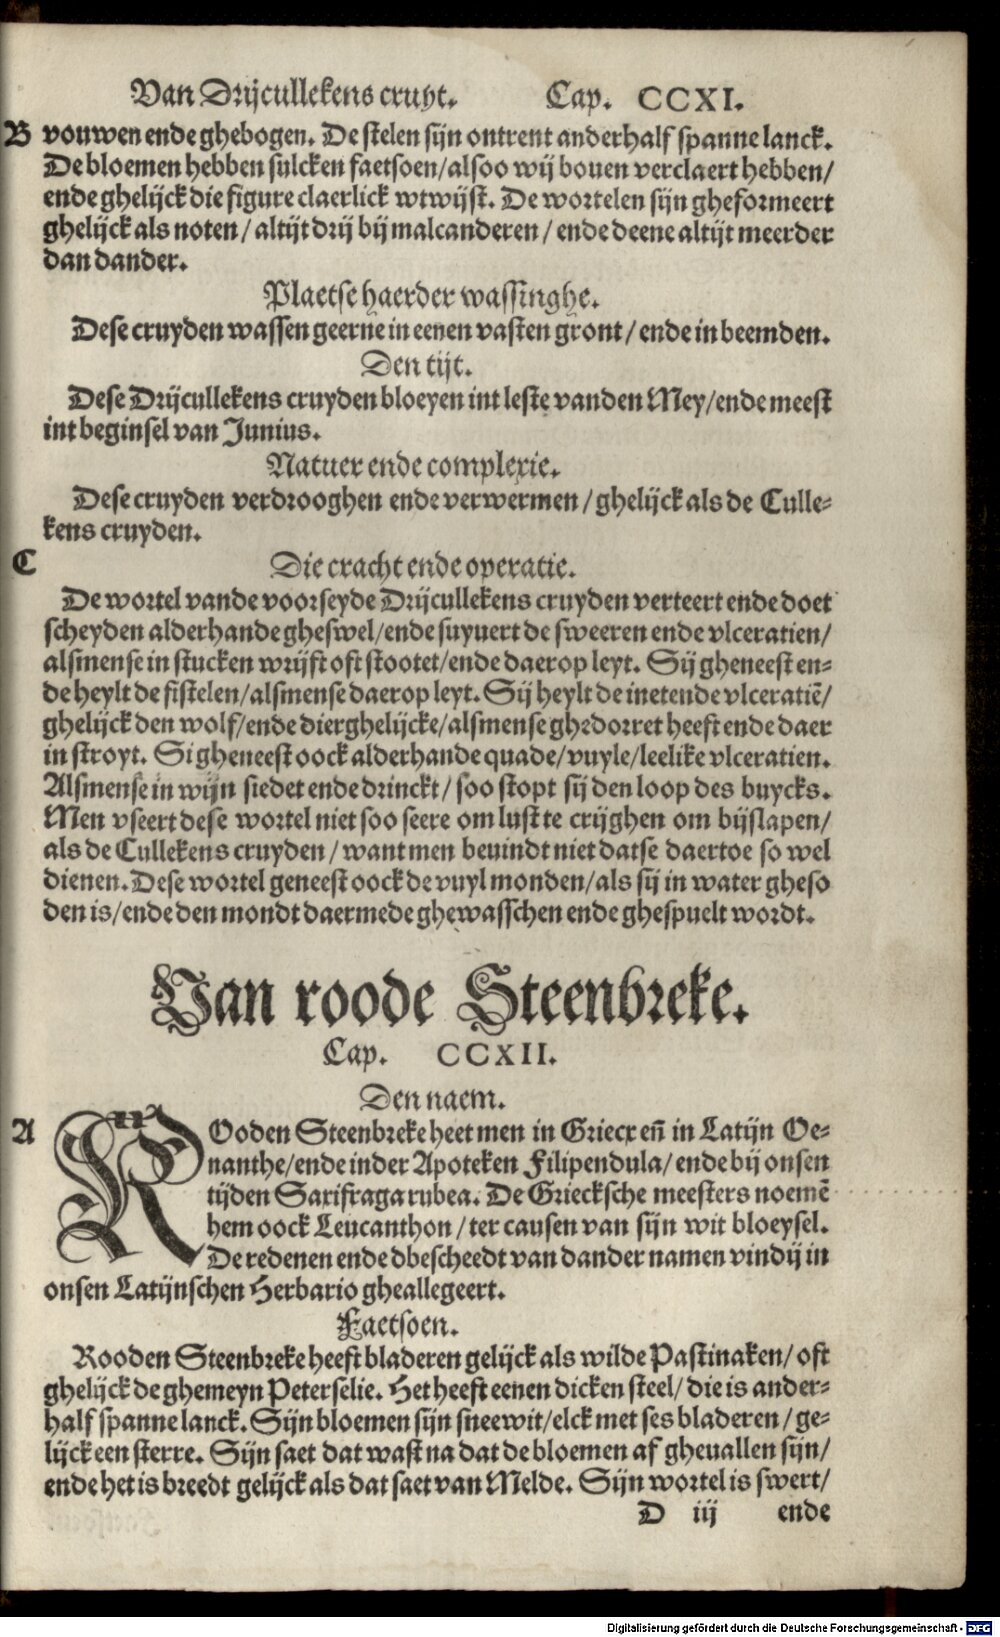 Van Drijcullekens cruyt. Cap. CCXI.
B vouwen ende ghebogen. De stelen sijn ontrent anderhalf spanne lanck.
De bloemen hebben sulcken faetsoen/alsoo wij bouen verclaert hebben/
ende ghelijck die figure claerlick wtwijst. De wortelen sijn gheformeert
ghelijck als noten/altijt drij bij malcanderen/ende deene altijt meerder
dan dander.
Plaetse haerder wassinghe.
Dese cruyden wassen geerne in eenen vasten gront/ende in beemden.
Den tijt.
Dese Drijcullekens cruyden bloeyen int leste vanden Mey/ende meest
int beginsel van Junius.
Natuer ende complexie.
Dese cruyden verdrooghen ende verwermen/ghelijck als de Culle-
kens cruyden.
C Die cracht ende operatie.
De wortel vande voorseyde Drijcullekens cruyden verteert ende doet
scheyden alderhande gheswel/ende suyuert de sweeren ende vlceratien/
alsmense in stucken wrijft oft stootet/ende daer op leyt. Sij gheneest en-
de heylt de fistelen/alsmense daer op leyt. Sij heylt de inetende vlceratiē/
ghelijck den wolf/ende dierghelijcke/alsmense ghedorret heeft ende daer
in stroyt. Si gheneest oock alderhande quade/vuyle/leelike vlceratien.
Alsmense in wijn siedet ende drinckt/soo stopt sij den loop des buycks.
Men vseert dese wortel niet soo seere om lust te crijghen om bijslapen/
als de Cullekens cruyden/want men beuindt niet datse daertoe so wel
dienen. Dese wortel geneest oock de vuyl monden/als sij in water gheso
den is/ende den mondt daermede ghewasschen ende ghespuelt wordt.
Van roode Steenbreke.
Cap. CCXII.
Den naem.
A ROoden Steenbreke heet men in Griecx eñ in Latijn Oe-
nanthe/ende inder Apoteken Filipendula/ende bij onsen
tijden Saxifraga rubea. De Griecksche meesters noemē
hem oock Leucanthon/ter causen van sijn wit bloeysel.
De redenen ende dbescheedt van dander namen vindij in
onsen Latijnschen Herbario gheallegeert.
Faetsoen.
Rooden Steenbreke heeft bladeren gelijck als wilde Pastinaken/oft
ghelijck de ghemeyn Peterselie. Het heeft eenen dicken steel/die is ander-
half spanne lanck. Sijn bloemen sijn sneewit/elck met ses bladeren/ge-
lijck een sterre. Sijn saet dat wast na dat de bloemen af gheuallen sijn/
ende het is breedt gelijck als dat saet van Melde. Sijn wortel is swert/
D iij ende
Digitalisierung gefördert durch die Deutsche Forschungsgemeinschaft - DFG